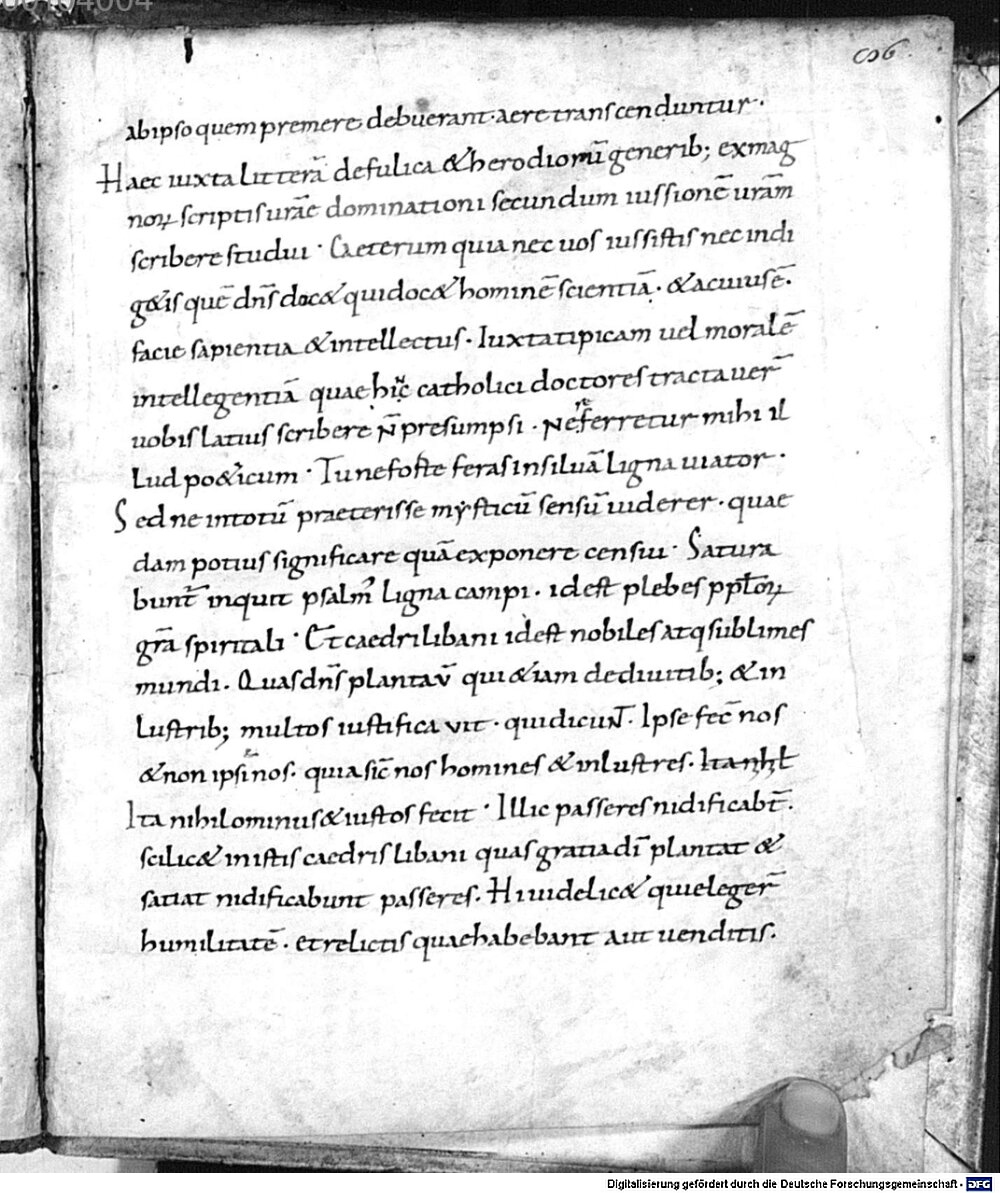 ab ipso quem premere debuerant· aere transcenduntur·
Haec iuxta litterā de fulica & herodiorū generib; ex mag
noꝝ scriptis urāe dominationi secundum iussionē urām
scribere studui· Caeterum quia nec uos iussistis nec indi
g&is quē dn̄s doc& qui doc& hominē scientiā· & a cuius ē·
facie sapientia & intellectus· Iuxta tipicam uel moralē
intellegentiā quae hic catholici doctores tractauer̄
uobis latius scribere n̄ presumpsi· Ne ferretur mihi il
lud po&icum· Tu ne foste feras in siluā ligna uiator·
Sed ne in totū praeterisse mẏsticū sensū uiderer· quae
dam potius significare quā exponere censui· Satura
bunt̄ inquit psalm̄ ligna campi· id est plebes pplōꝝ
gr̄a spiritali· Et caedri libani id est nobiles atq sublimes
mundi· Quas dn̄s plantav̄ qui &iam de diuitib; & in
lustrib; multos iustificavit· qui dicuNT· Ipse fec̄ nos
& non ipsi nos· quia sic̄ nos homines & inlustres·
Ita nihilominus & iustos fecit· Illic passeres nidificabt̄·
scilic& in istis caedris libani quas gratia dī plantat &
satiat nidificabunt passeres· Hi uidelic& qui eleger̄
humilitatē· et relictis quae habebant aut uenditis·
Digitalisierung gefördert durch die Deutsche Forschungsgemeinschaft - DFG